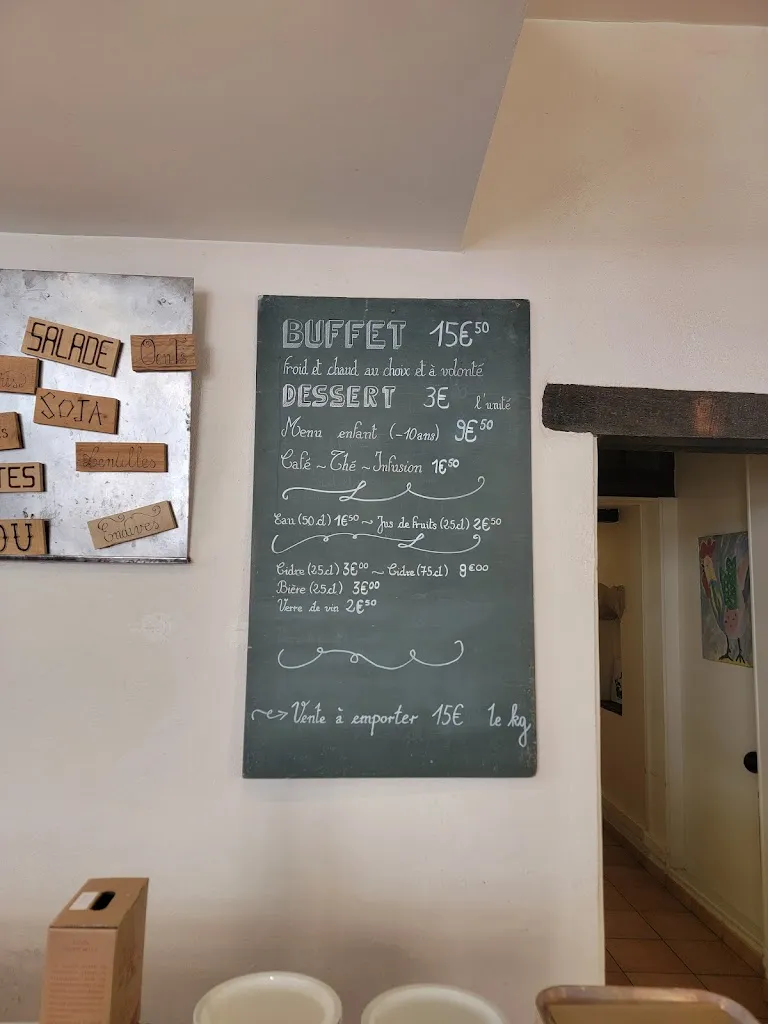 SALADE
SOJA
Lentilles
TES
Endives
OU
BUFFET 15€50
froid et chaud au choix et à volonté
DESSERT 3€ l'unité
Menu enfant (-10ans) 9€50
Café ~ Thé ~ Infusion 1€50
Eau (50.cl) 1€50 ~ Jus de fruits (25cl) 2€50
Cidre (25.cl) 3€00 ~ Cidre (75.cl) 9€00
Bière (25.cl) 3€00
Verre de vin 2€50
~> Vente à emporter 15€ le kg